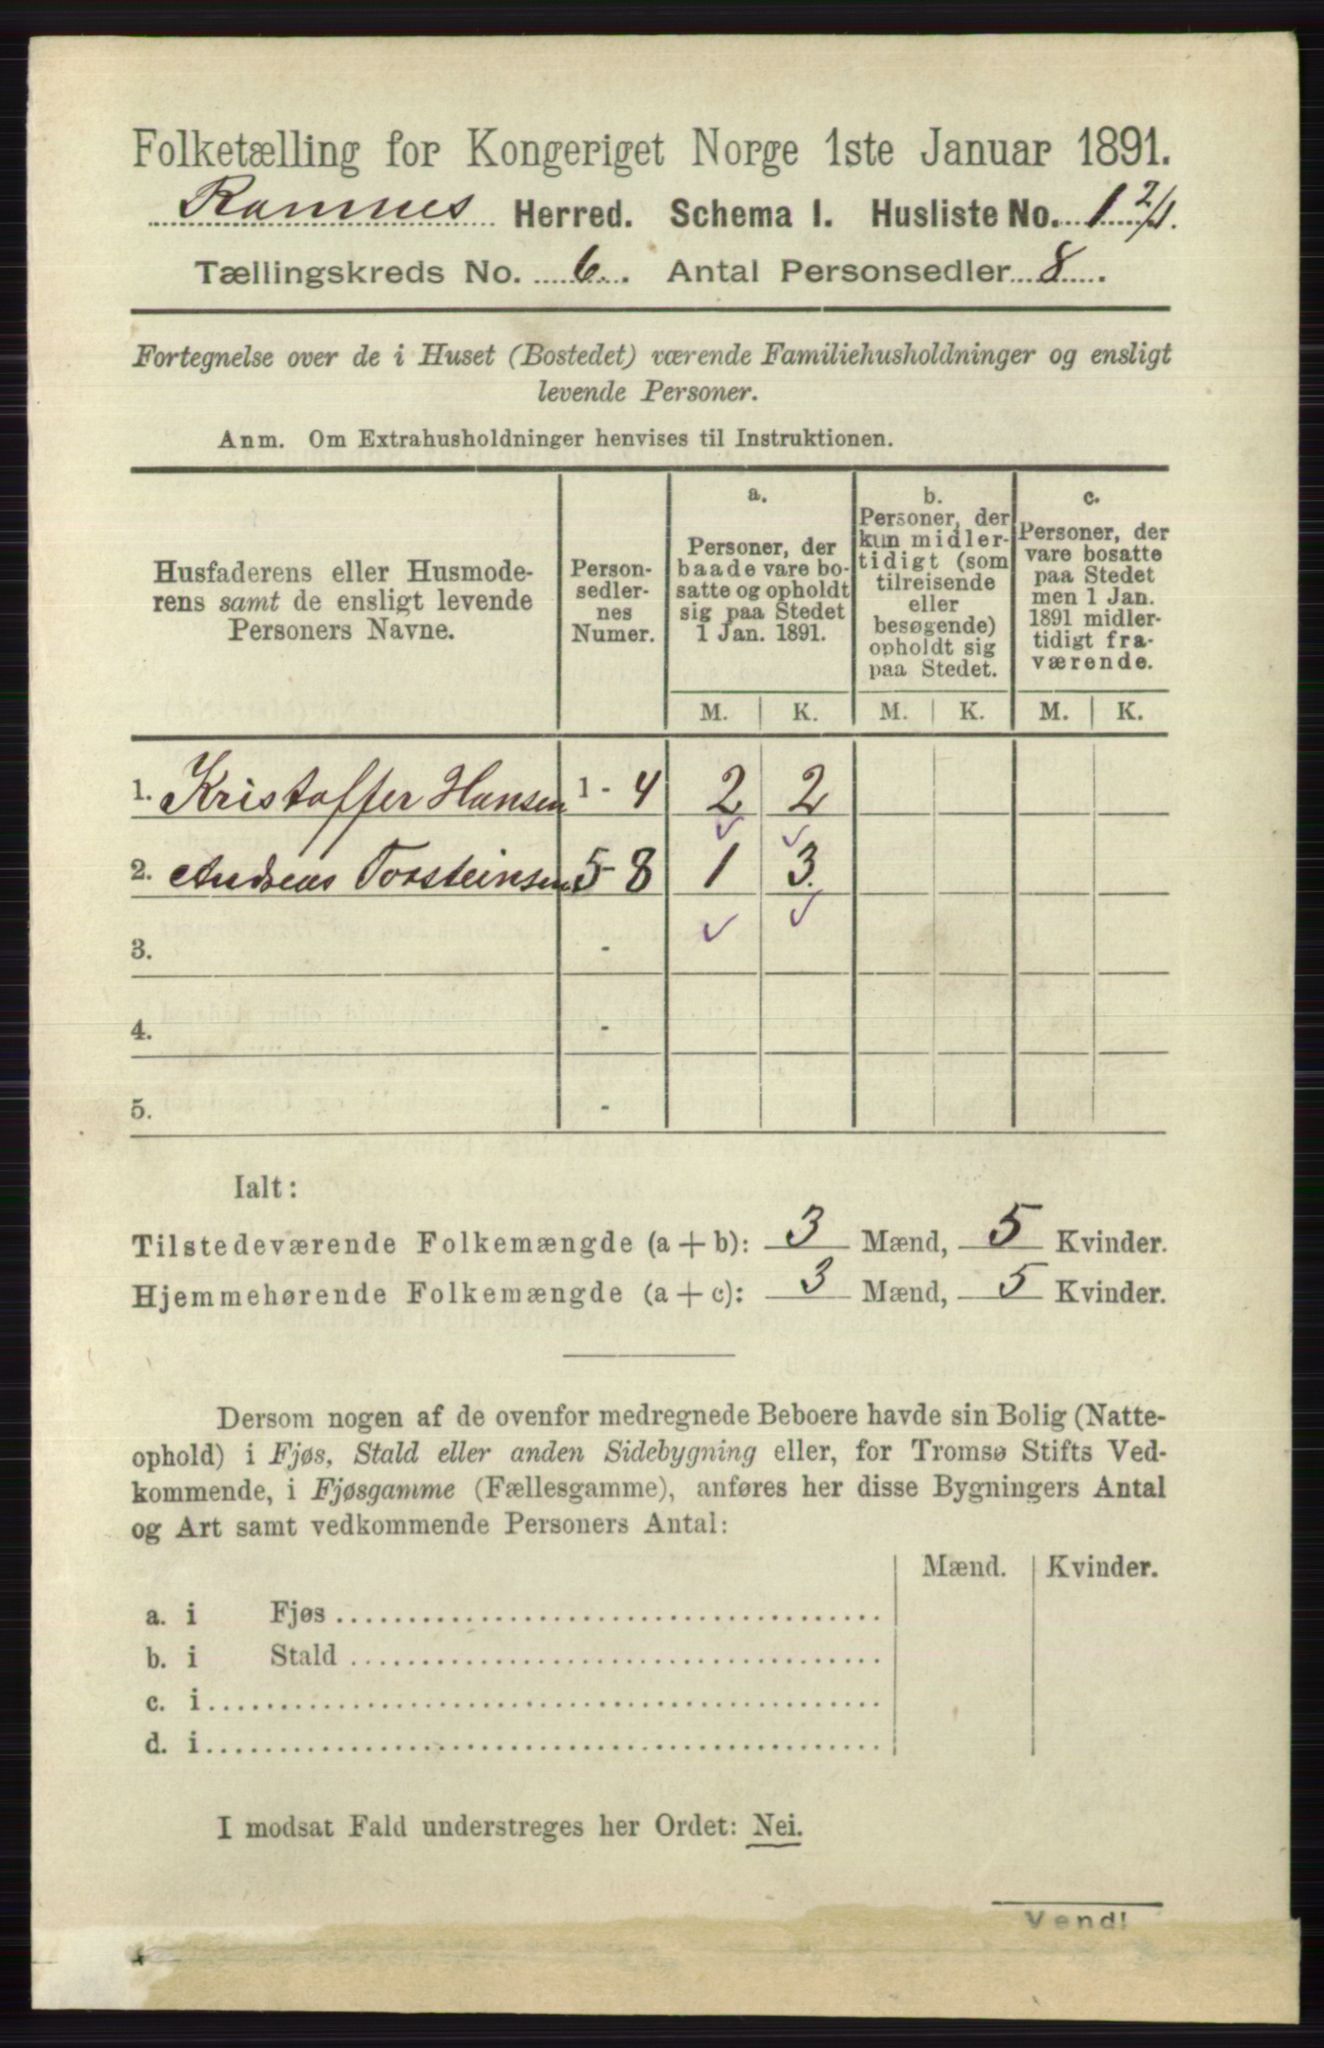 Folketælling for Kongeriget Norge 1ste Januar 1891.
Ramnes Herred. Schema I. Husliste No. 1 2/1.
Tællingskreds No. 6. Antal Personsedler 8.
Fortegnelse over de i Huset (Bostedet) værende Familiehusholdninger og ensligt
levende Personer.
Anm. Om Extrahusholdninger henvises til Instruktionen.
Husfaderens eller Husmode-
rens samt de ensligt levende
Personers Navne.
Person-
sedler-
nes
Numer.
a.
Personer, der
baade vare bo-
satte og opholdt
sig paa Stedet
1 Jan. 1891.
b.
Personer, der
kun midler-
tidigt (som
tilreisende
eller
besøgende)
opholdt sig
paa Stedet.
c.
Personer, der
vare bosatte
paa Stedet
men 1 Jan.
1891 midler-
tidigt fra-
værende.
M. K. M. K. M. K.
1. Kristoffer Hansen 1 - 4 2 2
2. Andreas Torsteinsen 5 - 8 1 3.
3. -
4. -
5. -
Ialt:
Tilstedeværende Folkemængde (a + b): 3 Mænd, 5 Kvinder.
Hjemmehørende Folkemængde (a + c): 3 Mænd, 5 Kvinder.
Dersom nogen af de ovenfor medregnede Beboere havde sin Bolig (Natte-
ophold) i Fjøs, Stald eller anden Sidebygning eller, for Tromsø Stifts Ved-
kommende, i Fjøsgamme (Fællesgamme), anføres her disse Bygningers Antal
og Art samt vedkommende Personers Antal:
Mænd. Kvinder.
a. i Fjøs
b. i Stald
c. i
d. i
I modsat Fald understreges her Ordet: Nei.
Vend!